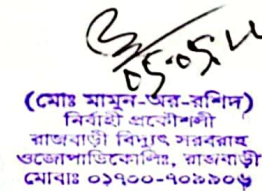 ০৫.০৫.২২
(মোঃ মামুন-অর-রশিদ)
নির্বাহী প্রকৌশলী
রাজবাড়ী বিদ্যুৎ সরবরাহ
ওজোপাডিকোলিঃ, রাজবাড়ী
মোবাঃ ০১৭০০-৭০৯৯০৬